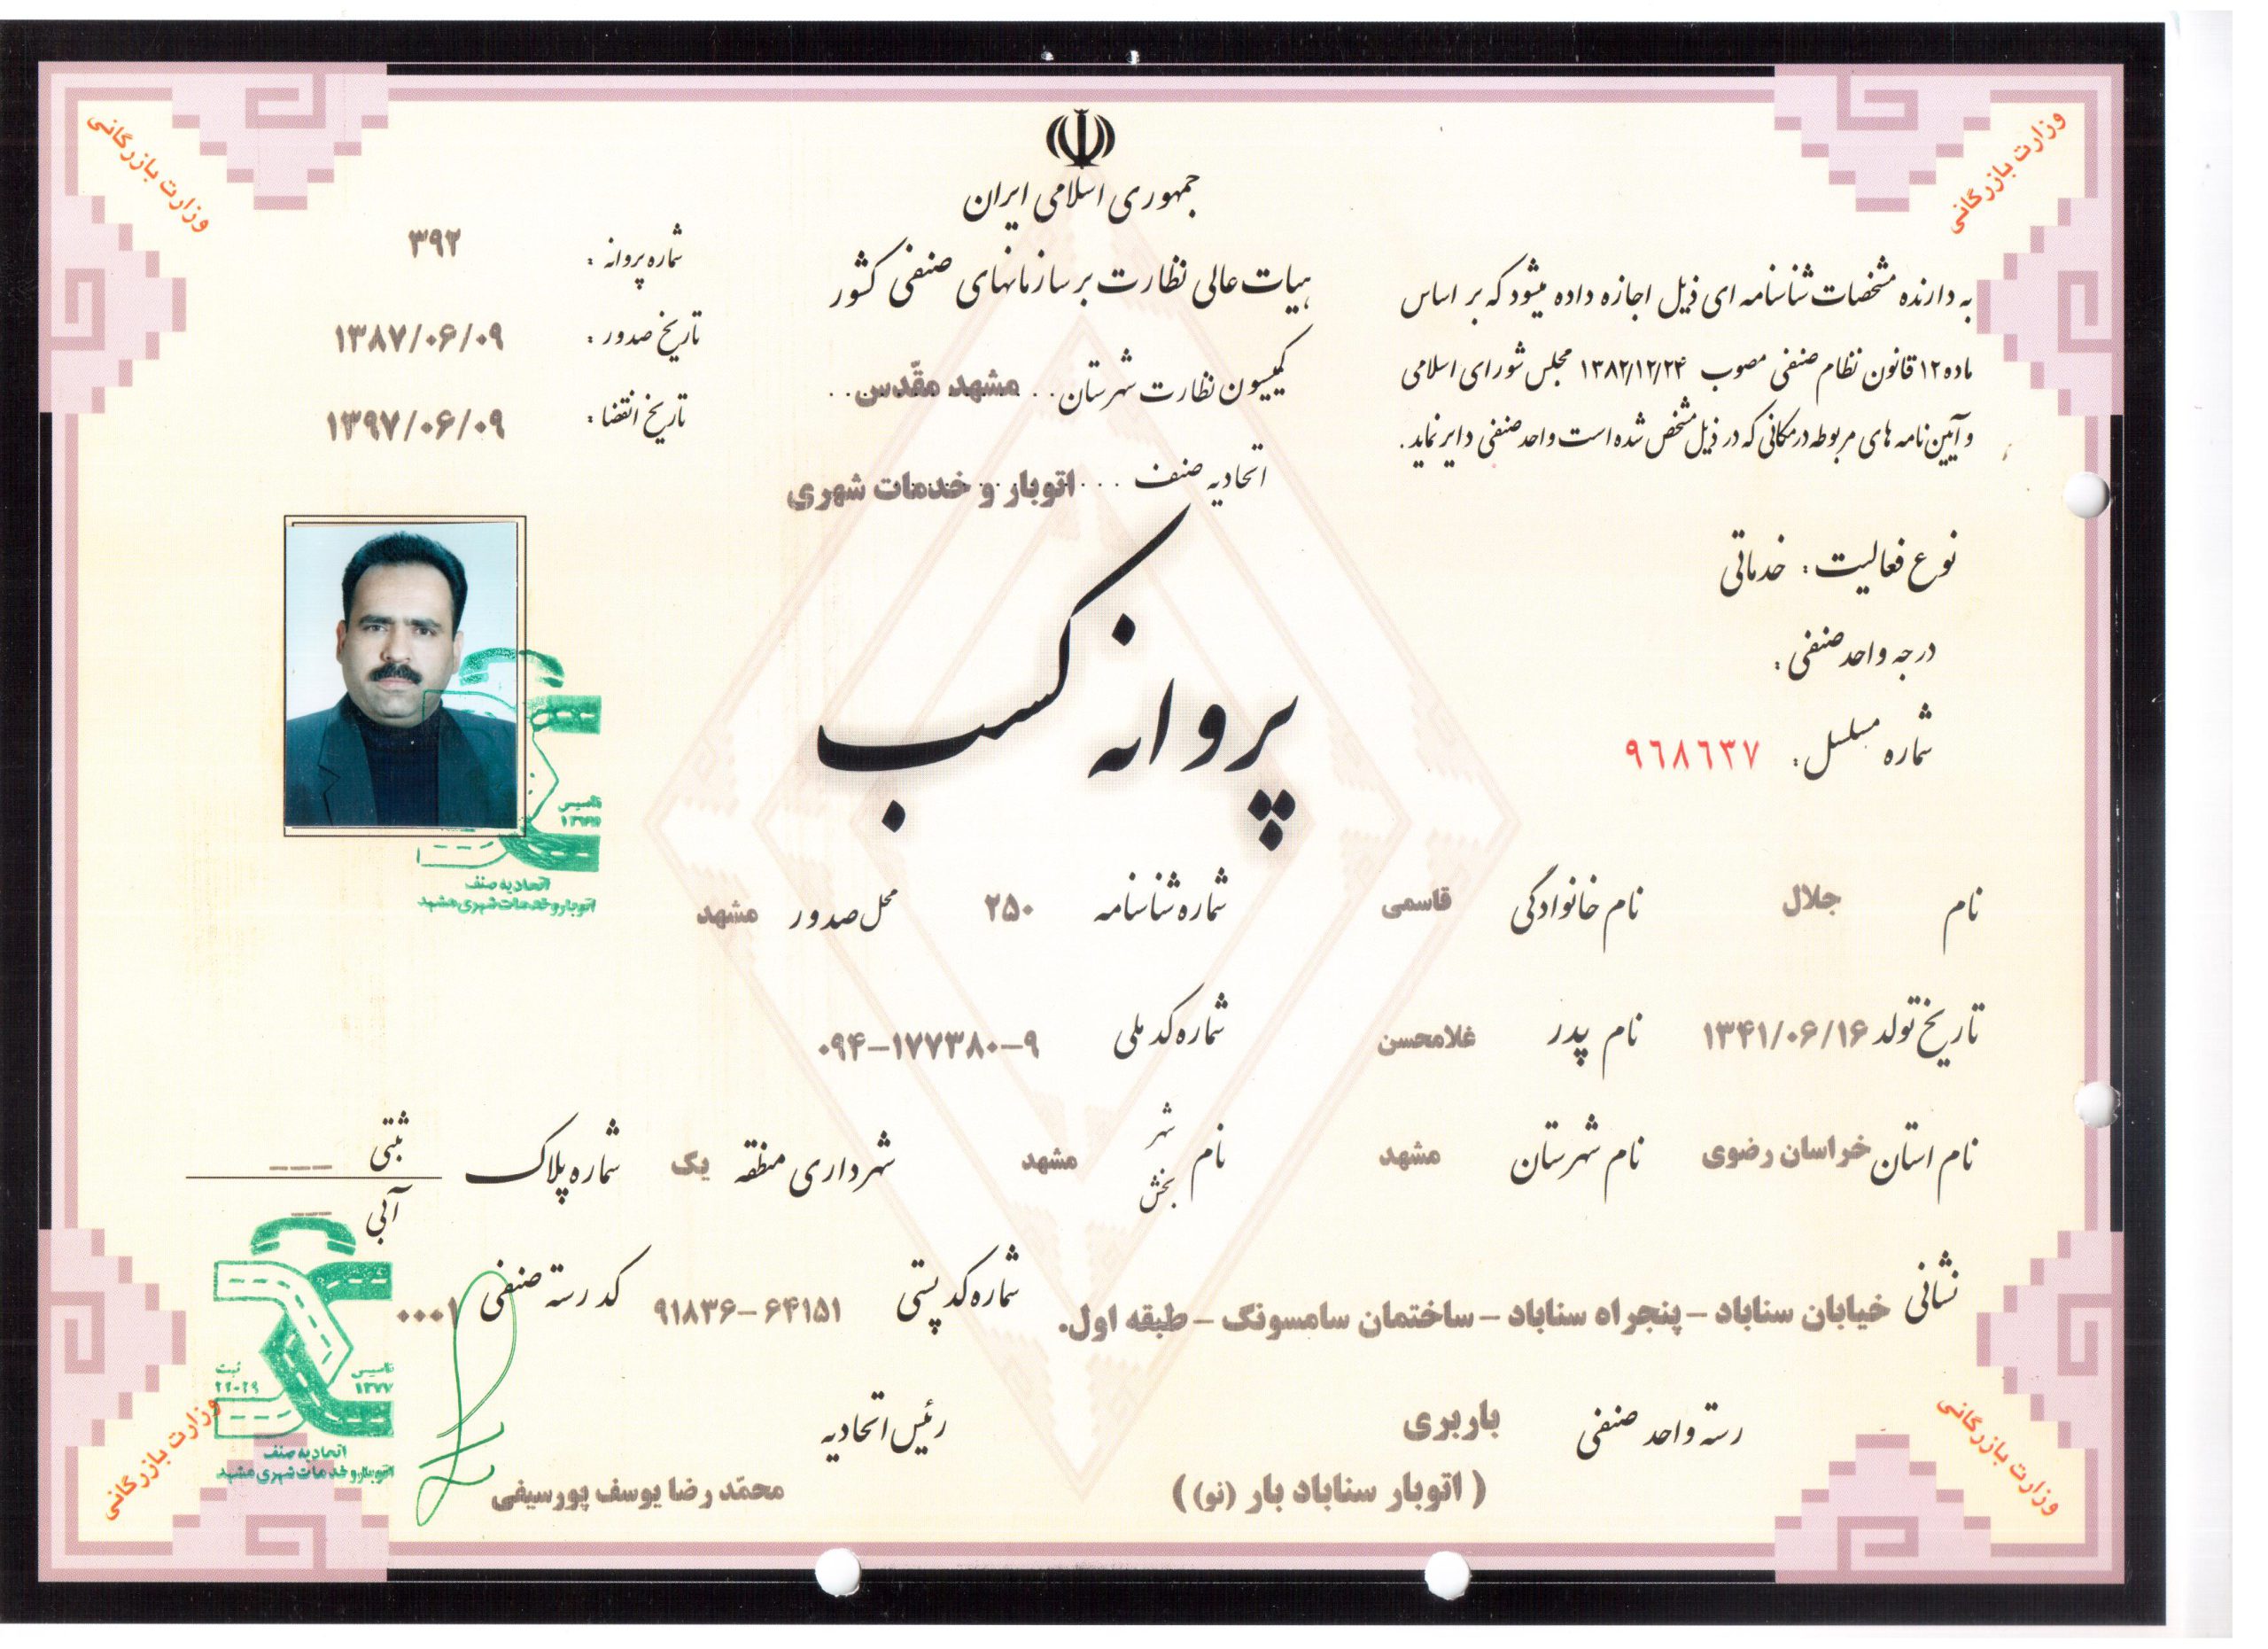 وزارت بازرگانی
وزارت بازرگانی
جمهوری اسلامی ایران
هیات عالی نظارت بر سازمانهای صنفی کشور
کمیسیون نظارت شهرستان .. مشهد مقدّس ..
اتحادیه صنف ... اتوبار و خدمات شهری
به دارنده مشخصات شناسنامه ای ذیل اجازه داده میشود که بر اساس
ماده ۱۲ قانون نظام صنفی مصوب ۱۳۸۲/۱۲/۲۴ مجلس شورای اسلامی
و آیین نامه های مربوطه در مکانی که در ذیل مشخص شده است واحد صنفی دایر نماید.
شماره پروانه : ۳۹۲
تاریخ صدور : ۱۳۸۷/۰۶/۰۹
تاریخ انقضا : ۱۳۹۷/۰۶/۰۹
نوع فعالیت : خدماتی
درجه واحد صنفی :
شماره مسلسل : ۹۶۸۶۳۷
پروانه کسب
تاسیس
اتحادیه صنف
اتوبار و خدمات شهری مشهد
نام جلال نام خانوادگی قاسمی شماره شناسنامه ۲۵۰ محل صدور مشهد
تاریخ تولد ۱۳۴۱/۰۶/۱۶ نام پدر غلامحسن شماره کد ملی ۰۹۴-۱۷۷۳۸۰-۹
نام استان خراسان رضوی نام شهرستان مشهد نام شهر بخش مشهد شهرداری منطقه یک شماره پلاک ثبتی --- آبی ---
نشانی خیابان سناباد - پنجراه سناباد - ساختمان سامسونگ - طبقه اول. شماره کد پستی ۹۱۸۳۶-۶۴۱۵۱ کد رسته صنفی ۰۰۰۱
رسته واحد صنفی باربری
( اتوبار سناباد بار (نو) )
رئیس اتحادیه
محمّد رضا یوسف پورسیفی
تاسیس ۱۳۷۷
ثبت ۲۲۰۲۹
اتحادیه صنف
اتوبار و خدمات شهری مشهد
وزارت بازرگانی
وزارت بازرگانی